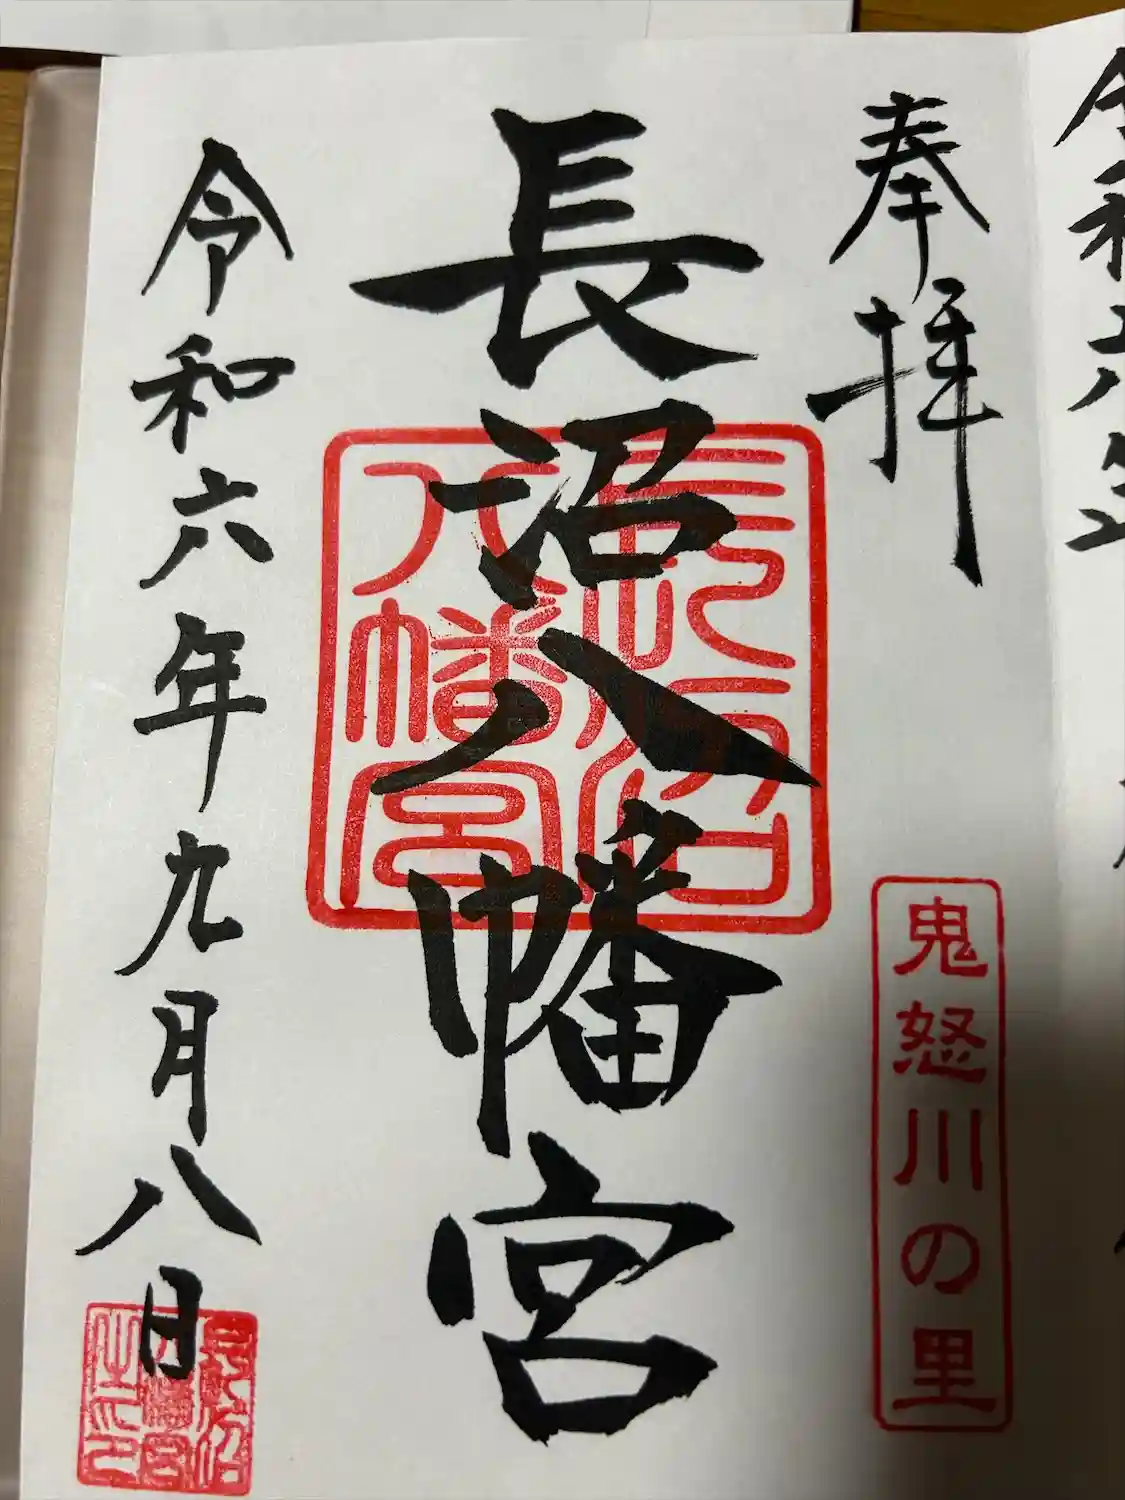 奉拝
鬼怒川の里
長沼八幡宮
長沼八幡宮
令和六年九月八日
長沼八幡宮之印